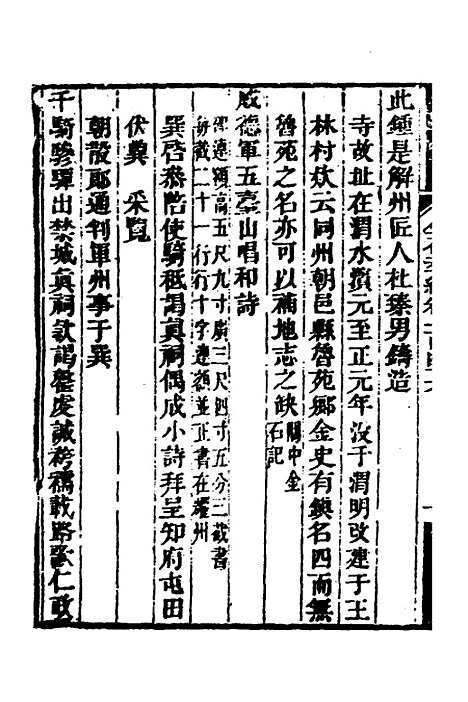 此鍾是解州匠人杜臻男鑄造
寺故址在渭水濱元至正元年沒于渭明改建于王
林村炊云同州朝邑縣魯苑鄉金史有鎮名四而無
魯苑之名亦可以補地志之缺關中金
石記
威德軍五臺山唱和詩
碑連額高五尺九寸廣三尺四寸五分二截書
每截二十一行行十字連額並正書在耀州
巽啓恭陪使騎秪謁真祠偶成小詩拜呈知府屯田
伏冀 采覽
朝散郎通判軍州事于巽
千騎驂驔出禁城真祠欵謁罄虔誠袴襦載路歌仁政